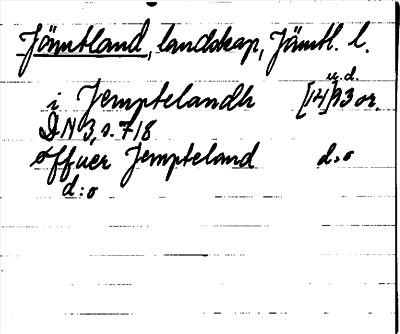 Jämtland, landskap, Jämtl. l.
u.d.
i Jemptelandh [14]93 or.
DN 3, s. 718
offuer Jempteland d:o
d:o